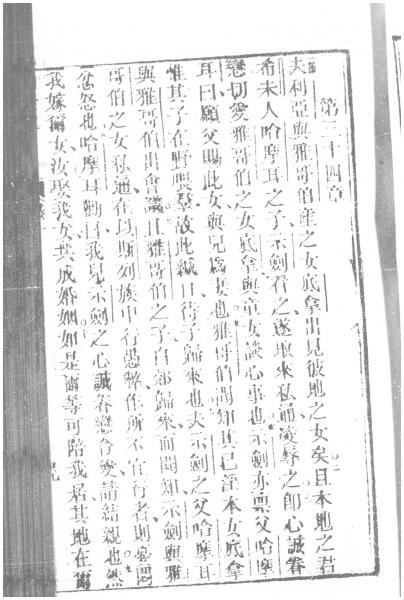 第三十四章
夫利亞與雅哥伯產之女底拿出見彼地之女矣且本地之君
希未人哈摩耳之子示劍看之遂取來私通凌辱之卽心誠眷
戀切愛雅哥伯之女底拿與童女談心事也示劍亦稟父哈摩
耳曰願父賜此女與兒為妻也雅哥伯聞知其已淫本女底拿
惟其子在野喂羣故此緘口待子歸來也夫示劍之父哈摩耳
與雅哥伯出會議且雅哥伯之子自郊歸來而聞知示劍與雅
哥伯之女私通在以斯列族中行愚弊作所不宜行者則憂悶
忿怒也哈摩耳 曰我兒示劍之心誠眷戀令愛請結親也然
我嫁爾女汝娶我女共成婚姻如是爾等可陪我居其地在爾